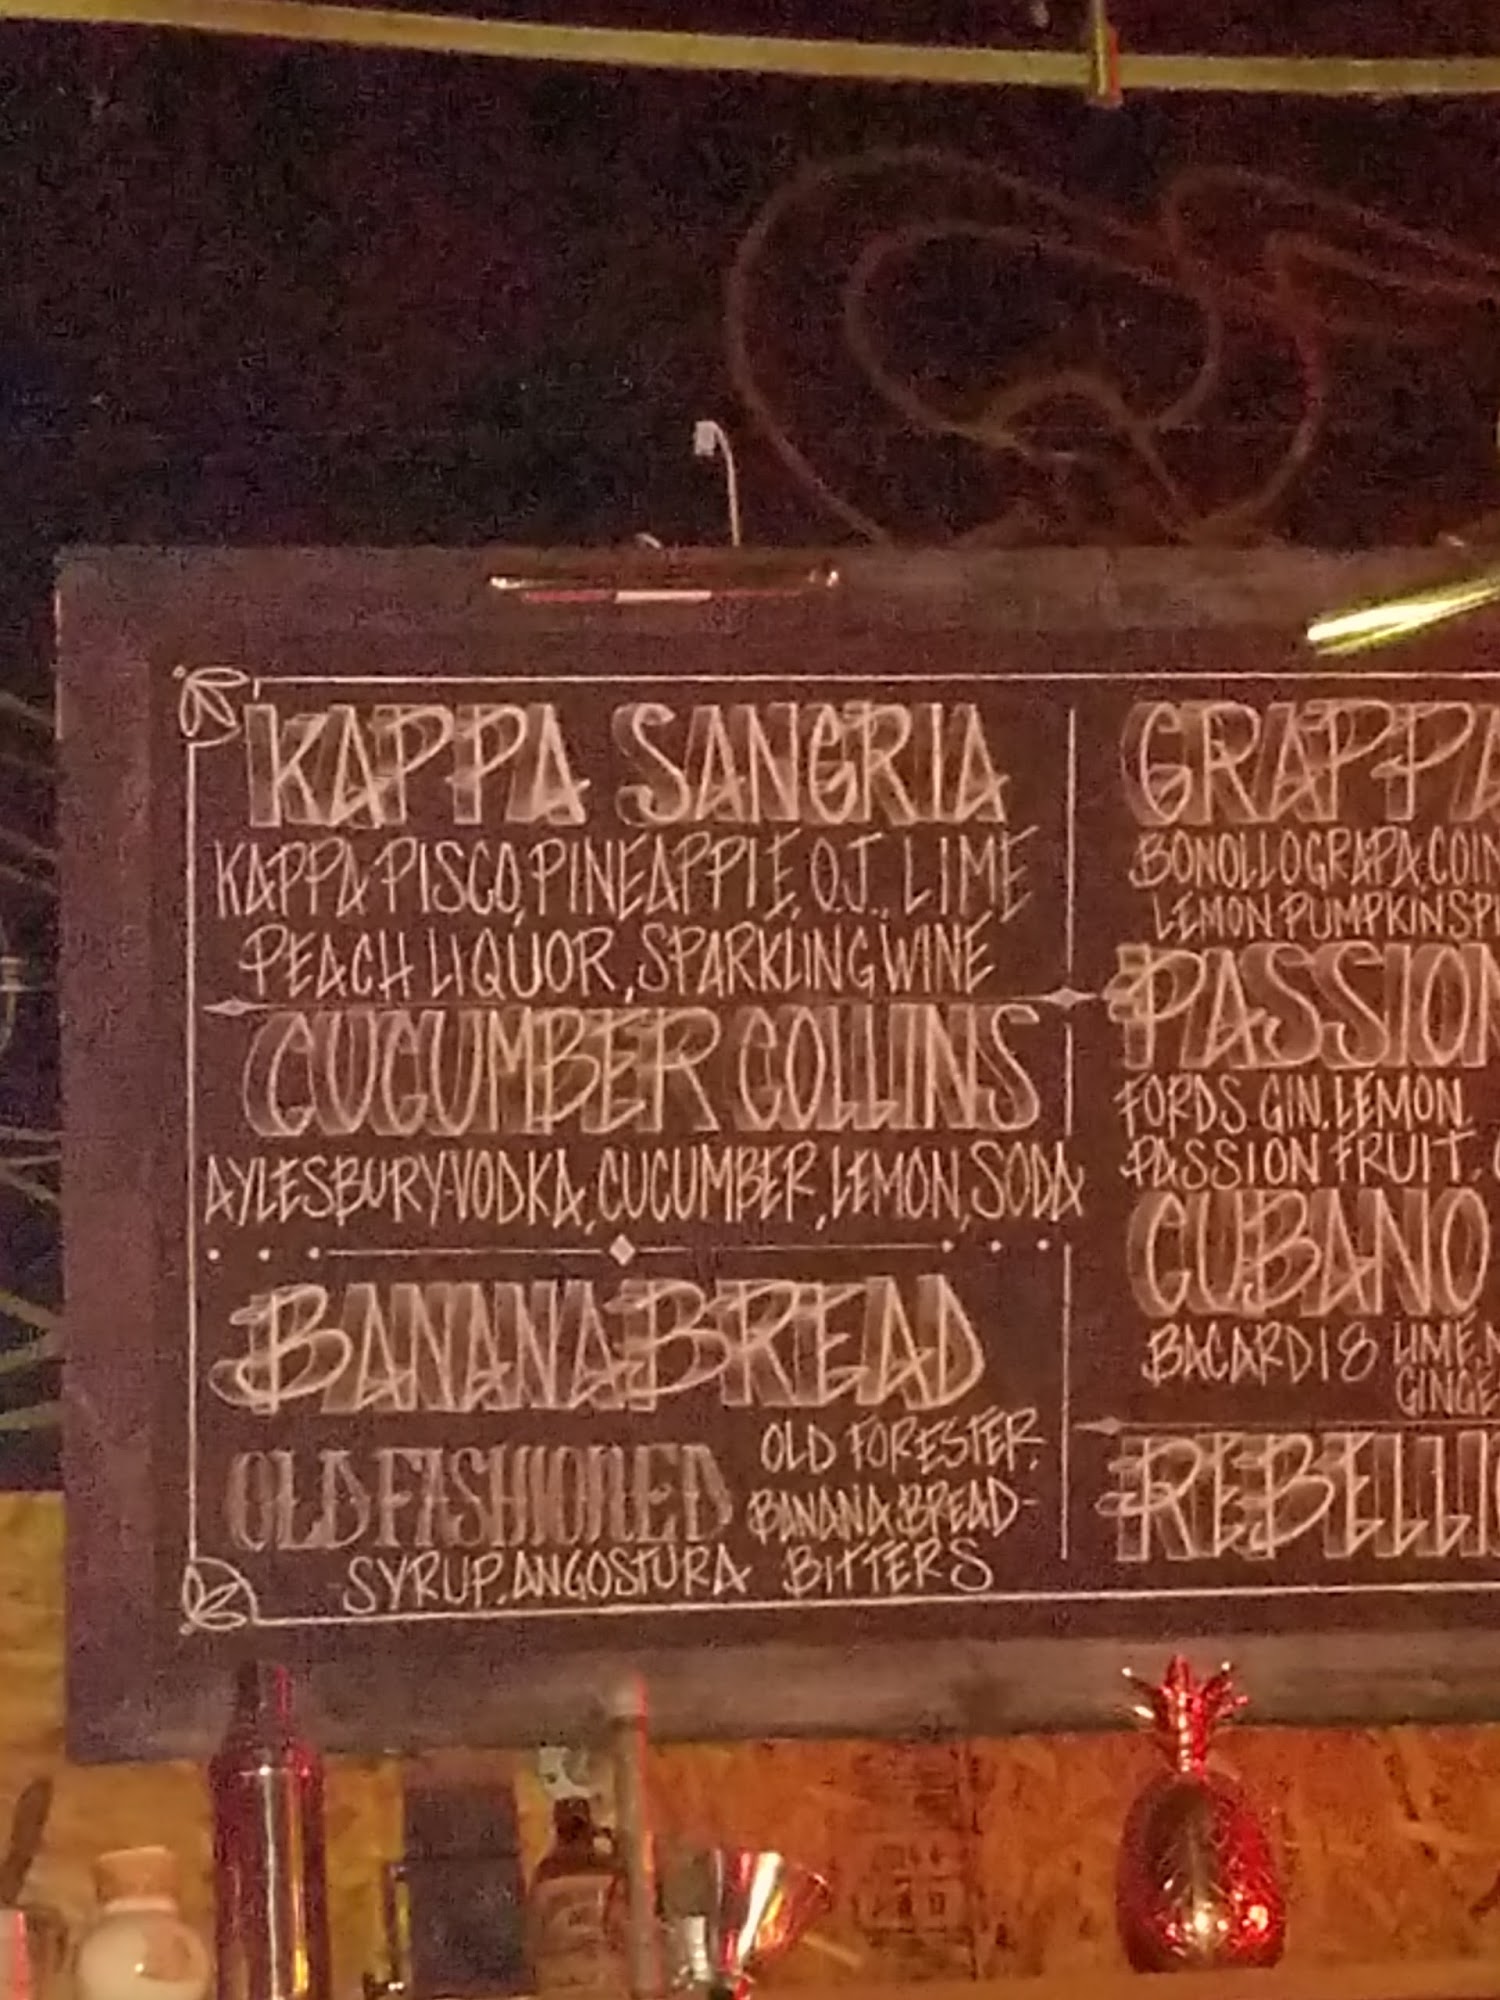 KAPPA SANGRIA
KAPPA PISCO, PINEAPPLE, O.J., LIME
PEACH LIQUOR, SPARKLING WINE
CUCUMBER COLLINS
AYLESBURY-VODKA, CUCUMBER, LEMON, SODA
BANANA BREAD
OLD FASHIONED
OLD FORESTER,
BANANA BREAD-
SYRUP, ANGOSTURA BITTERS
GRAPPA
BONOLLO GRAPA, COIN
LEMON PUMPKIN SP
PASSION
FORDS. GIN, LEMON,
PASSION FRUIT,
CUBANO
BACARDI 8 LIME,
GINGE
REBELLI